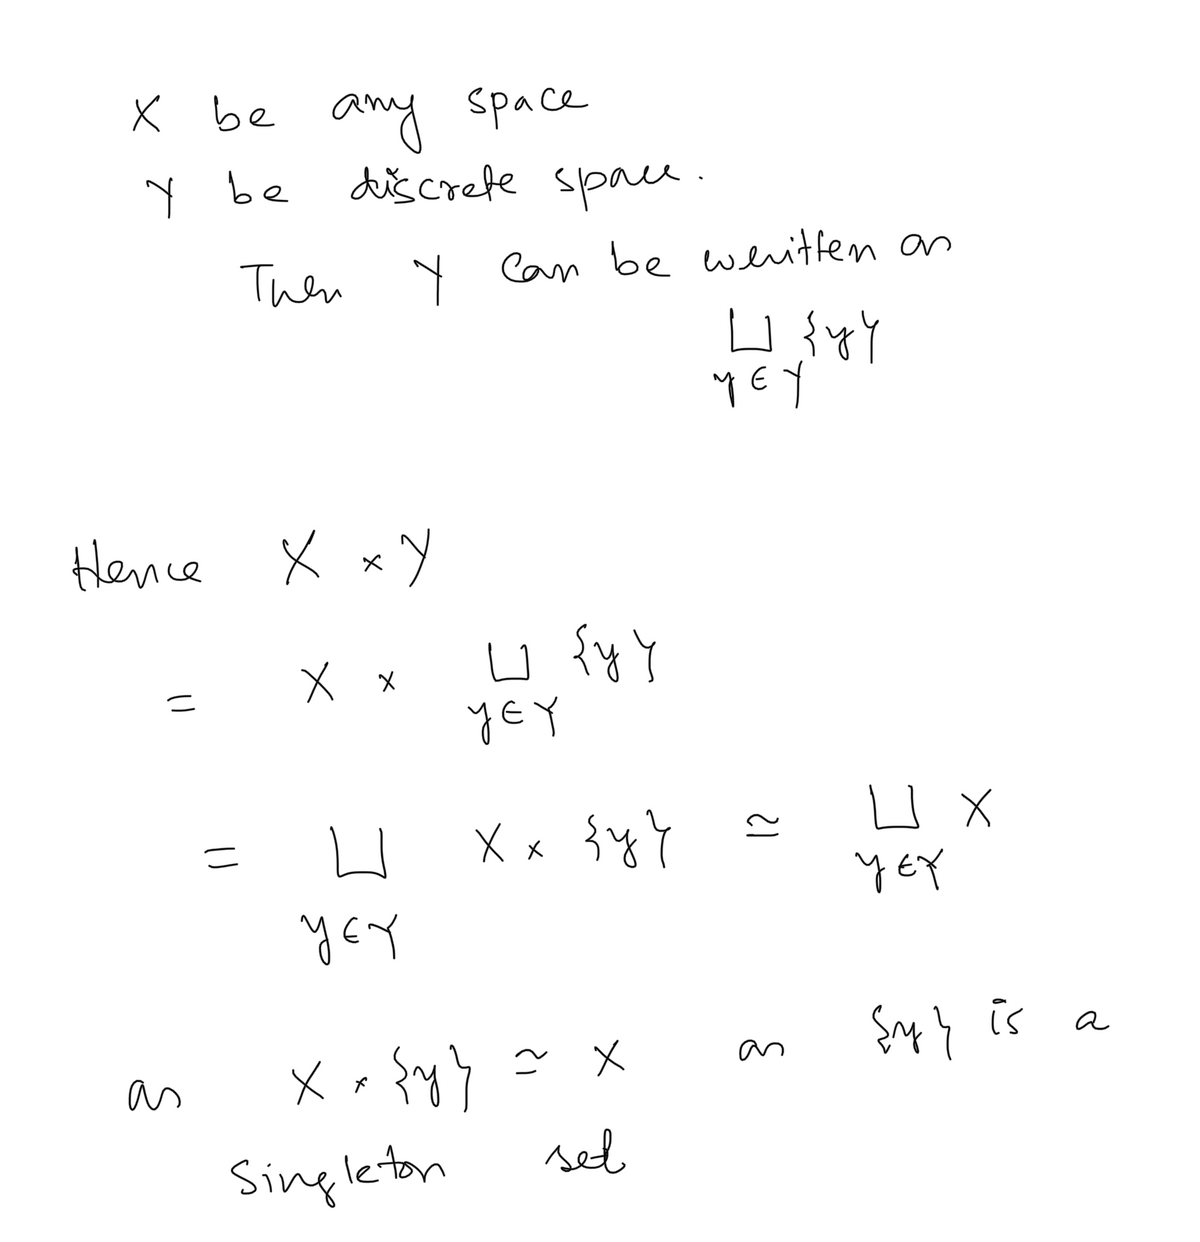 X be any space
Y be discrete space.
Then Y can be written as
⊔ {y}
y ∈ Y
Hence X × Y
= X × ⊔ {y}
y ∈ Y
= ⊔ X × {y} ≃ ⊔ X
y ∈ Y y ∈ Y
as X × {y} ≃ X as {y} is a
Singleton set